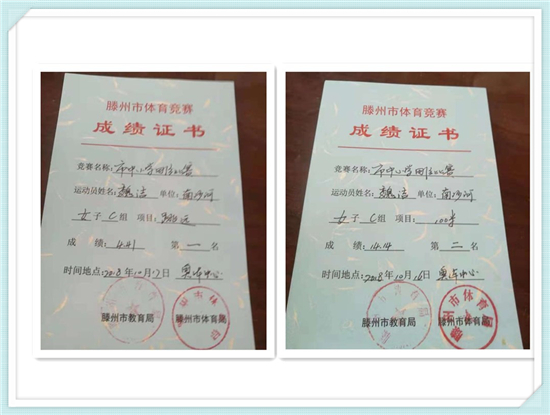 滕州市体育竞赛
成绩证书
竞赛名称:市中小学田径比赛
运动员姓名:魏洁 单位:南沙河
女子C组 项目:跳远
成 绩:4.41 第一名
时间地点:2018年10月17日 奥体中心
滕州市教育局 滕州市体育局
滕州市体育竞赛
成绩证书
竞赛名称:市中小学田径比赛
运动员姓名:魏洁 单位:南沙河
女子C组 项目:100米
成 绩:14.14 第二名
时间地点:2018年10月16日 奥体中心
滕州市教育局 滕州市体育局